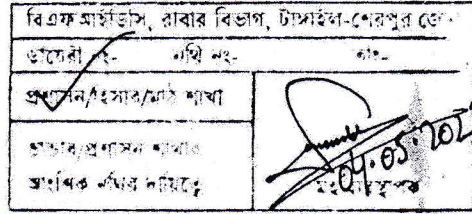 বিএফআইডিসি, রাবার বিভাগ, টাঙ্গাইল-শেরপুর জোন
ডায়েরী নং- নথি নং- তাং-
প্রশাসন/হিসাব/মাঠ শাখা
প্রশাসন শাখার
দায়িত্বে
04.05.202